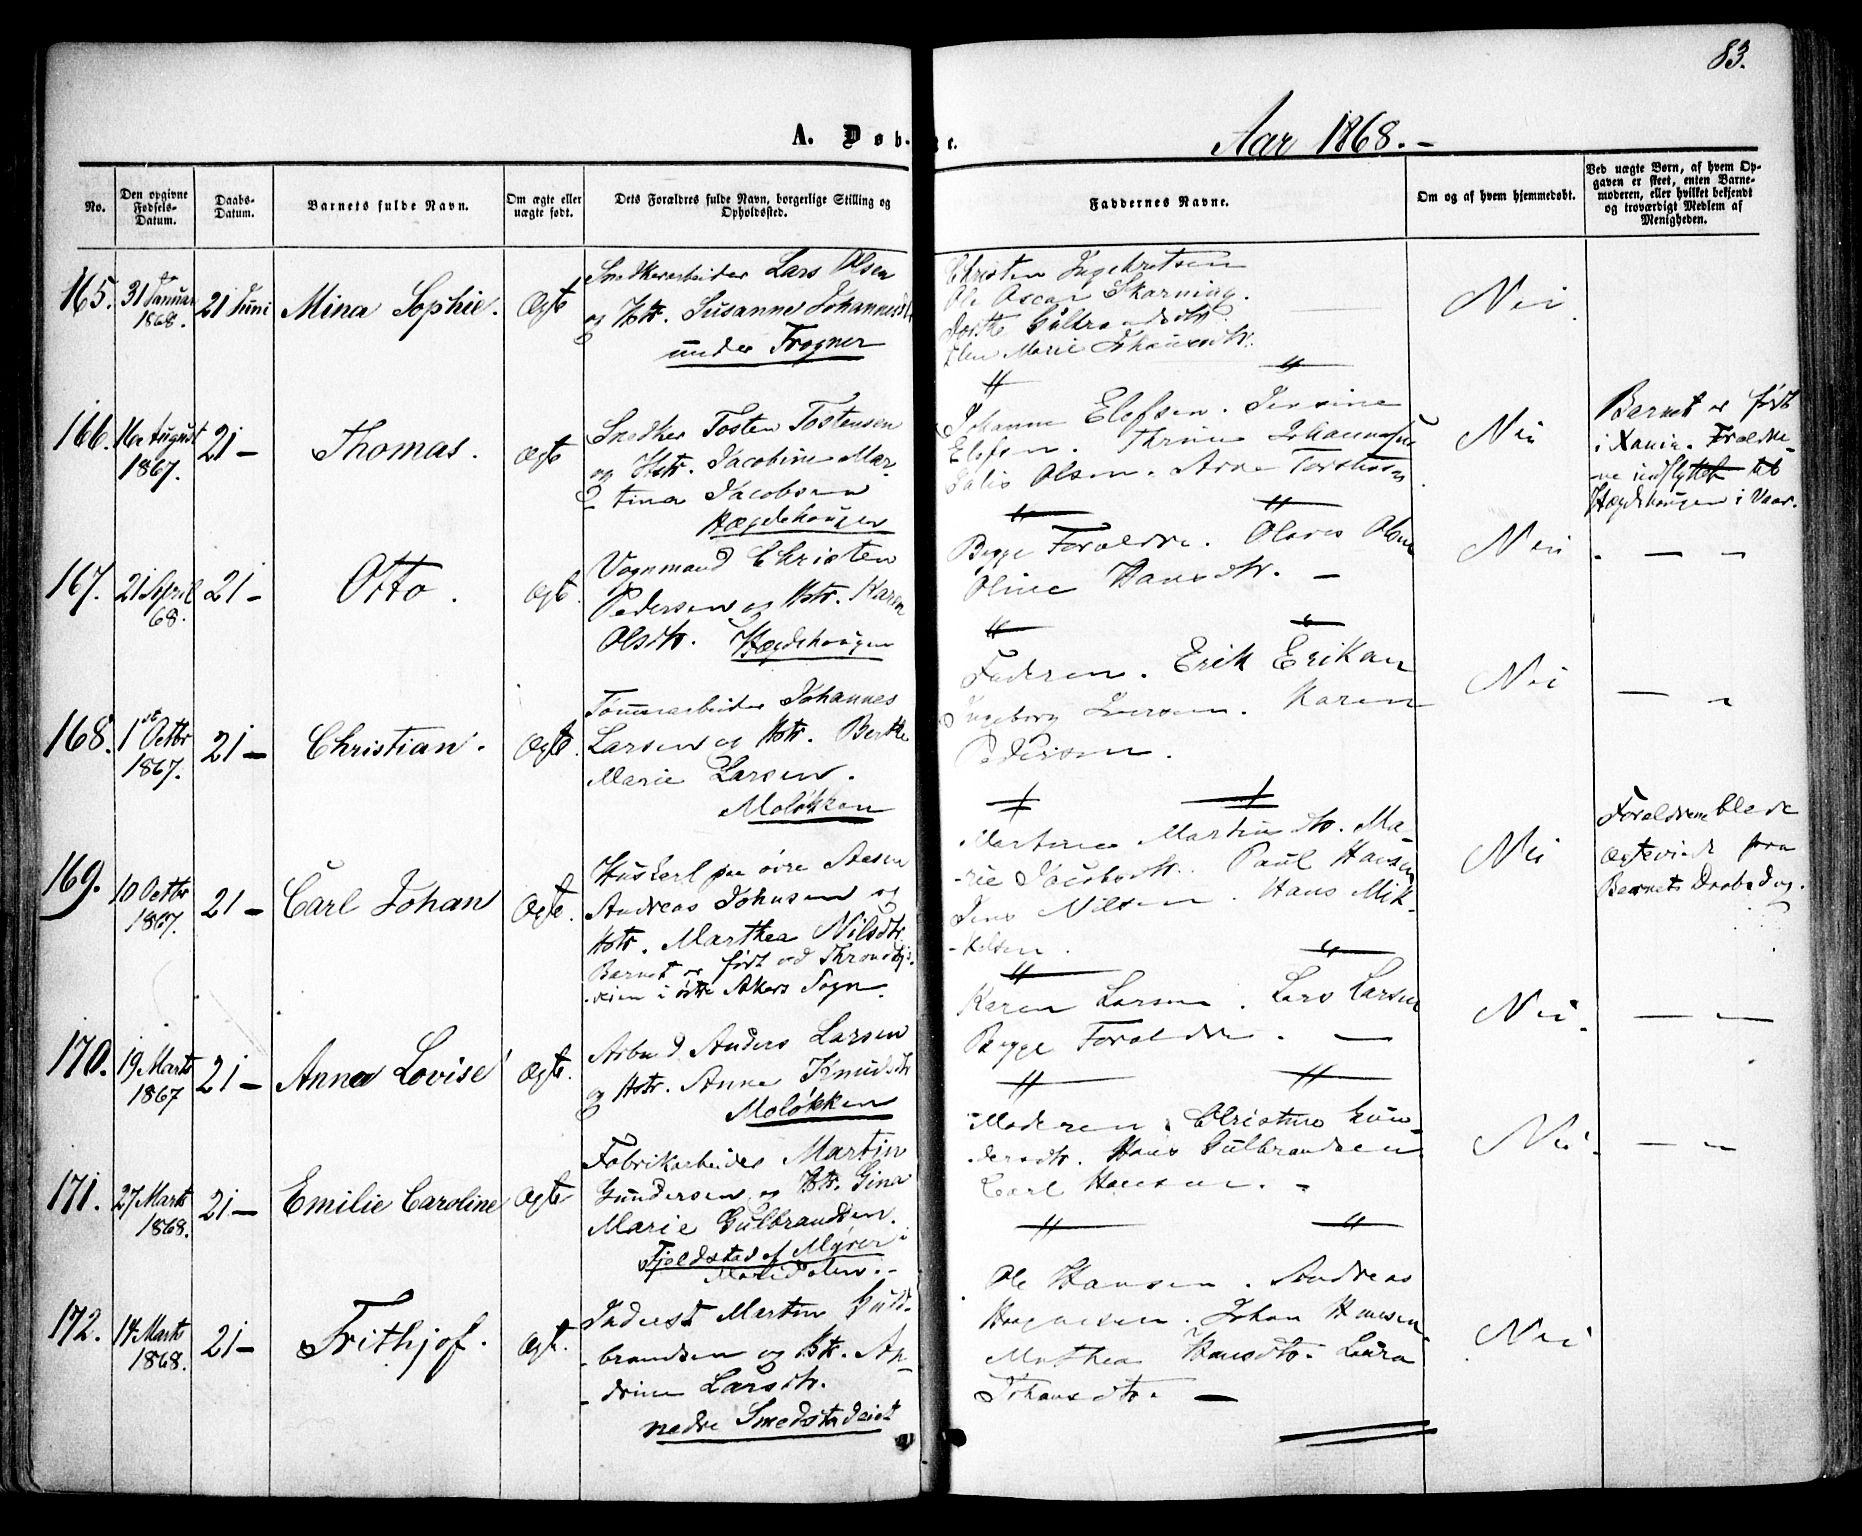 83.
A. Døb- te.
Aar 1868. -
No.
Den opgivne Fødsels-Datum.
Daabs-Datum.
Barnets fulde Navn.
Om ægte eller uægte født.
Dets Forældres fulde Navn, borgerlige Stilling og Opholdssted.
Faddernes Navne.
Om og af hvem hjemmedøbt.
Ved uægte Børn, af hvem Opgaven er skeet, enten Barnemoderen, eller hvilket bekjendt og troværdigt Medlem af Menigheden.
165.
31 Januar 1868.
21 Juni
Mina Sophie.
Ægte
Snedkerarbeider Lars Olsen
og Hstr. Susanne Johannesdtr
under Frogner
Christen Ingebretsen
Ole Oscar Skarning.
Dorthe Gulbrandsdtr.
Elen Marie Johansdtr.
Nei.
166.
16de August 1867.
21 -
Thomas.
Ægte
Snedker Tosten Tostensen
og Hstr. Jacobine Mar-
tina Jacobsen
Hægdehaugen
Johanne Elefsen. Jensine
Elefsen. Thrine Johannesne
Olsen. Arne Torstesen
Nei
Barnet er født
i Xania. Forældre-
ne indflyttet til
Hægdehaugen i Vaar.
167.
21 April 68.
21 -
Otto.
Ægte.
Vognmand Christen
Pedersen og Hstr. Karen
Olsdtr. Hægdehaugen
Begge Forældre. Olaves Olsen
Oline Hansdtr. -
Nei - — —
168.
1st Octbr 1867.
21 -
Christian.
Ægte.
Tømmerarbeider Johannes
Larsen og Hstr. Berthe
Marie Larsen.
Moløkken
Faderen. Erik Eriksen
Ingeborg Iversen. Karen
Pedersen.
Nei — -
169.
10 Octbr 1867.
21 -
Carl Johan
Ægte.
Huskarl paa øvre Aasen
Andreas Johnsen og
Hstr. Marthea Nilsdtr
Barnet er født ved Throndhj-
veien i østre Akers Sogn.
Martinea Martinsdtr. Ma-
-rie Jacobsdtr. Paul Hansen
Jens Nilsen. Hans Mik-
-kelsen.
Nei
Forældrene blede
ægteviede for
Barnets Daabsdag.
170.
19 Marts 1867
21 -
Anna Lovise
Ægte.
Arbmd Anders Larsen
og Hstr. Anne Knudsdtr
Moløkken
Karen Larsen. Lars Larsen
Begge Forældre. —
Nei. — —
171.
27 Marts 1868.
21 -
Emilie Caroline
Ægte
Fabrikarbeider Martin
Gundersen og Hstr. Gina
Marie Gulbrandsen.
Fjeldstad af Myrer i
Maridalen. -
Moderen. Christine Gun-
dersdtr. Hans Gulbrandsen
Carl Hansen. -
Nei. — —
172.
14 Marts 1868.
21 -
Frithjof.
Ægte.
Inderst Martin Guld-
-brandsen og Hstr. An-
-drine Larsdtr.
nedre Smedstadeiet
Ole Hansen. Andreas
Haagensen. Johan Hansen
Mathea Hansdtr. Laura
Johansdtr. —
Nei